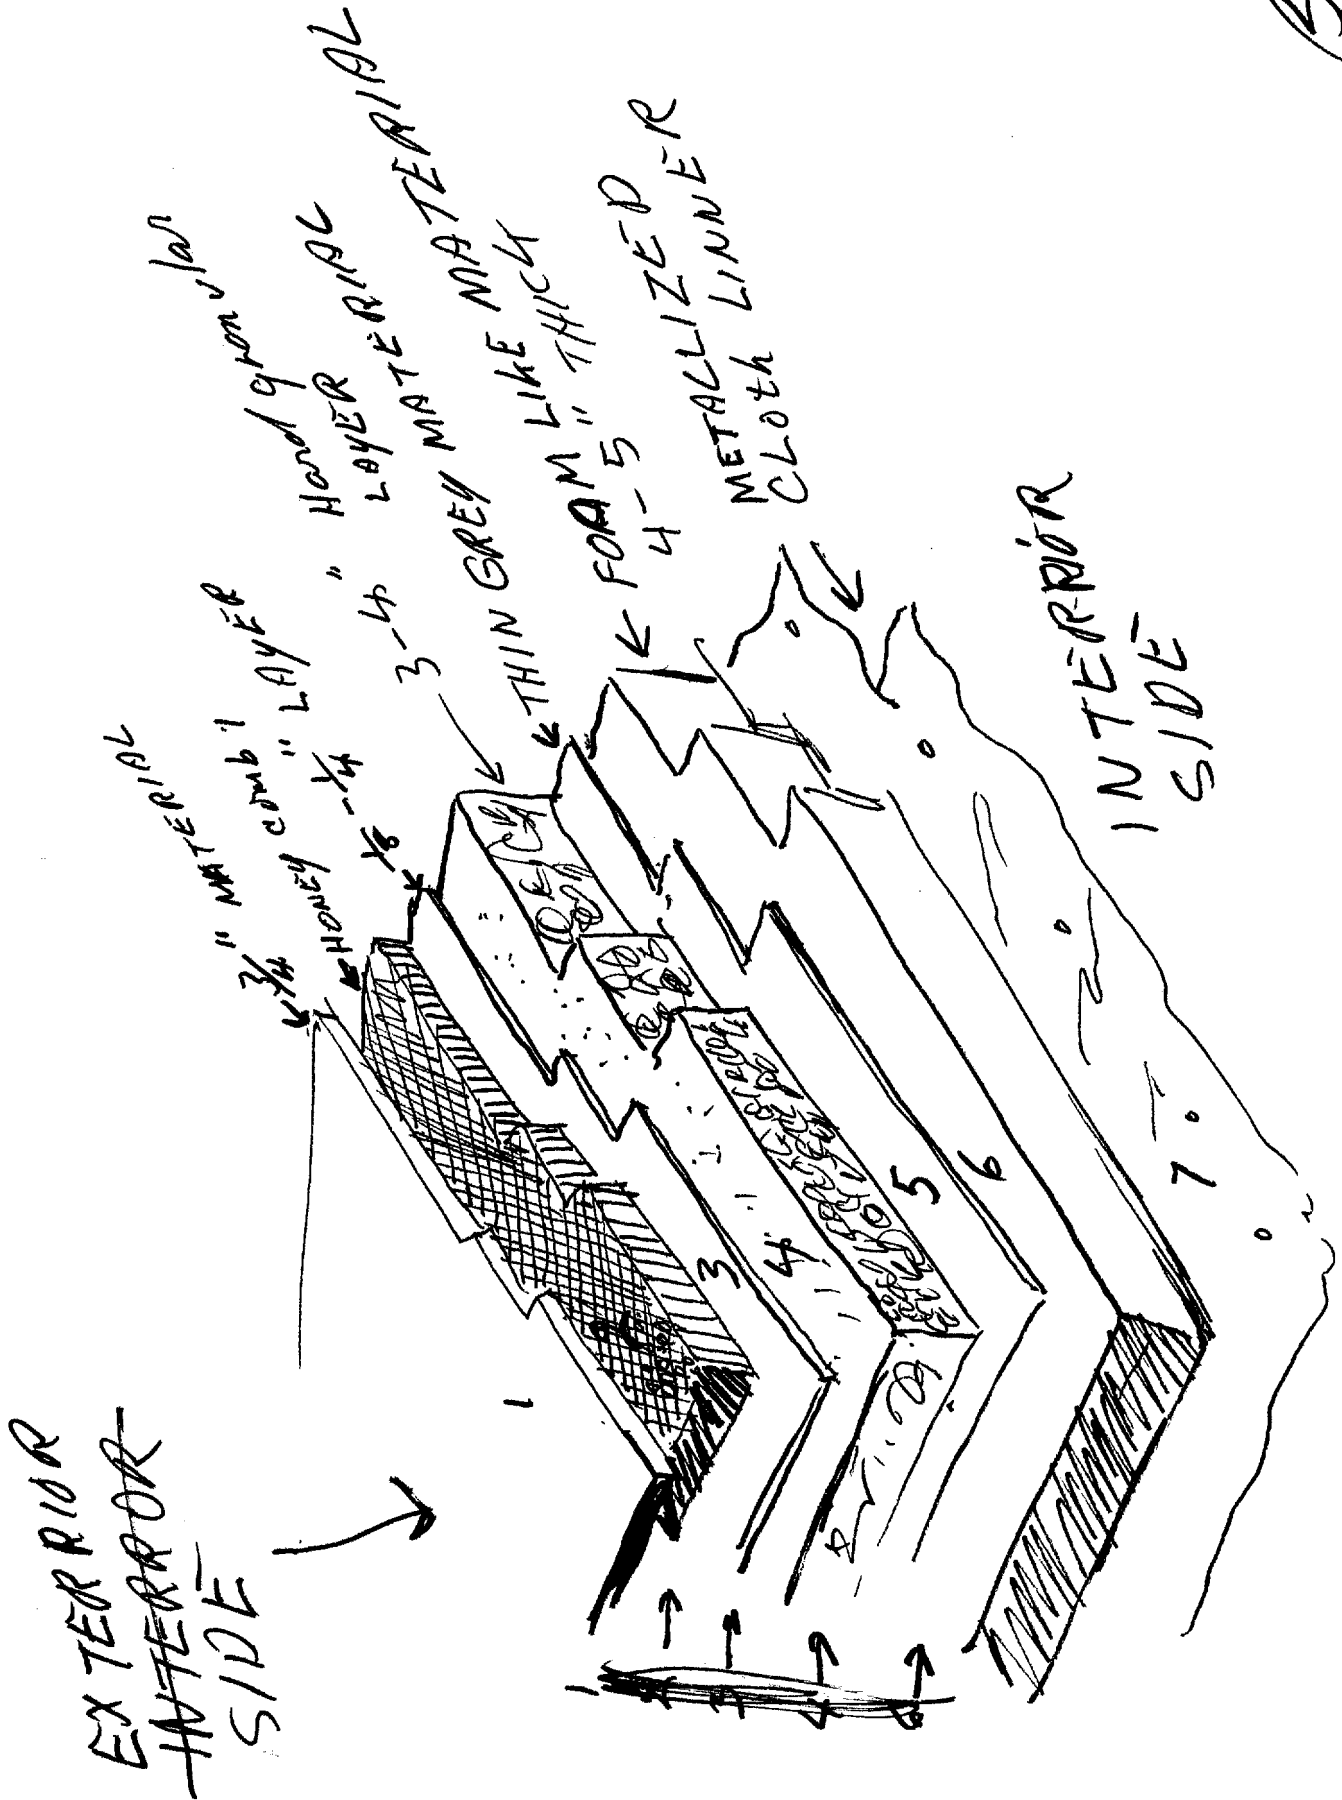 EXTERRIOR
INTERROR
SIDE
3/4" MATERIAL
HONEY comb
" LAYER
1/8 " - 1/4 " Hard granular
LAYER
3-4 " LAYER MATERIAL
THIN GREY MATERIAL
FOAM LIKE MATERIAL
4-5" THICK
METACLIZED
CLOTH LINNER
INTERRIOR
SIDE
1
3
4
5
6
7
1
2
3
4
6